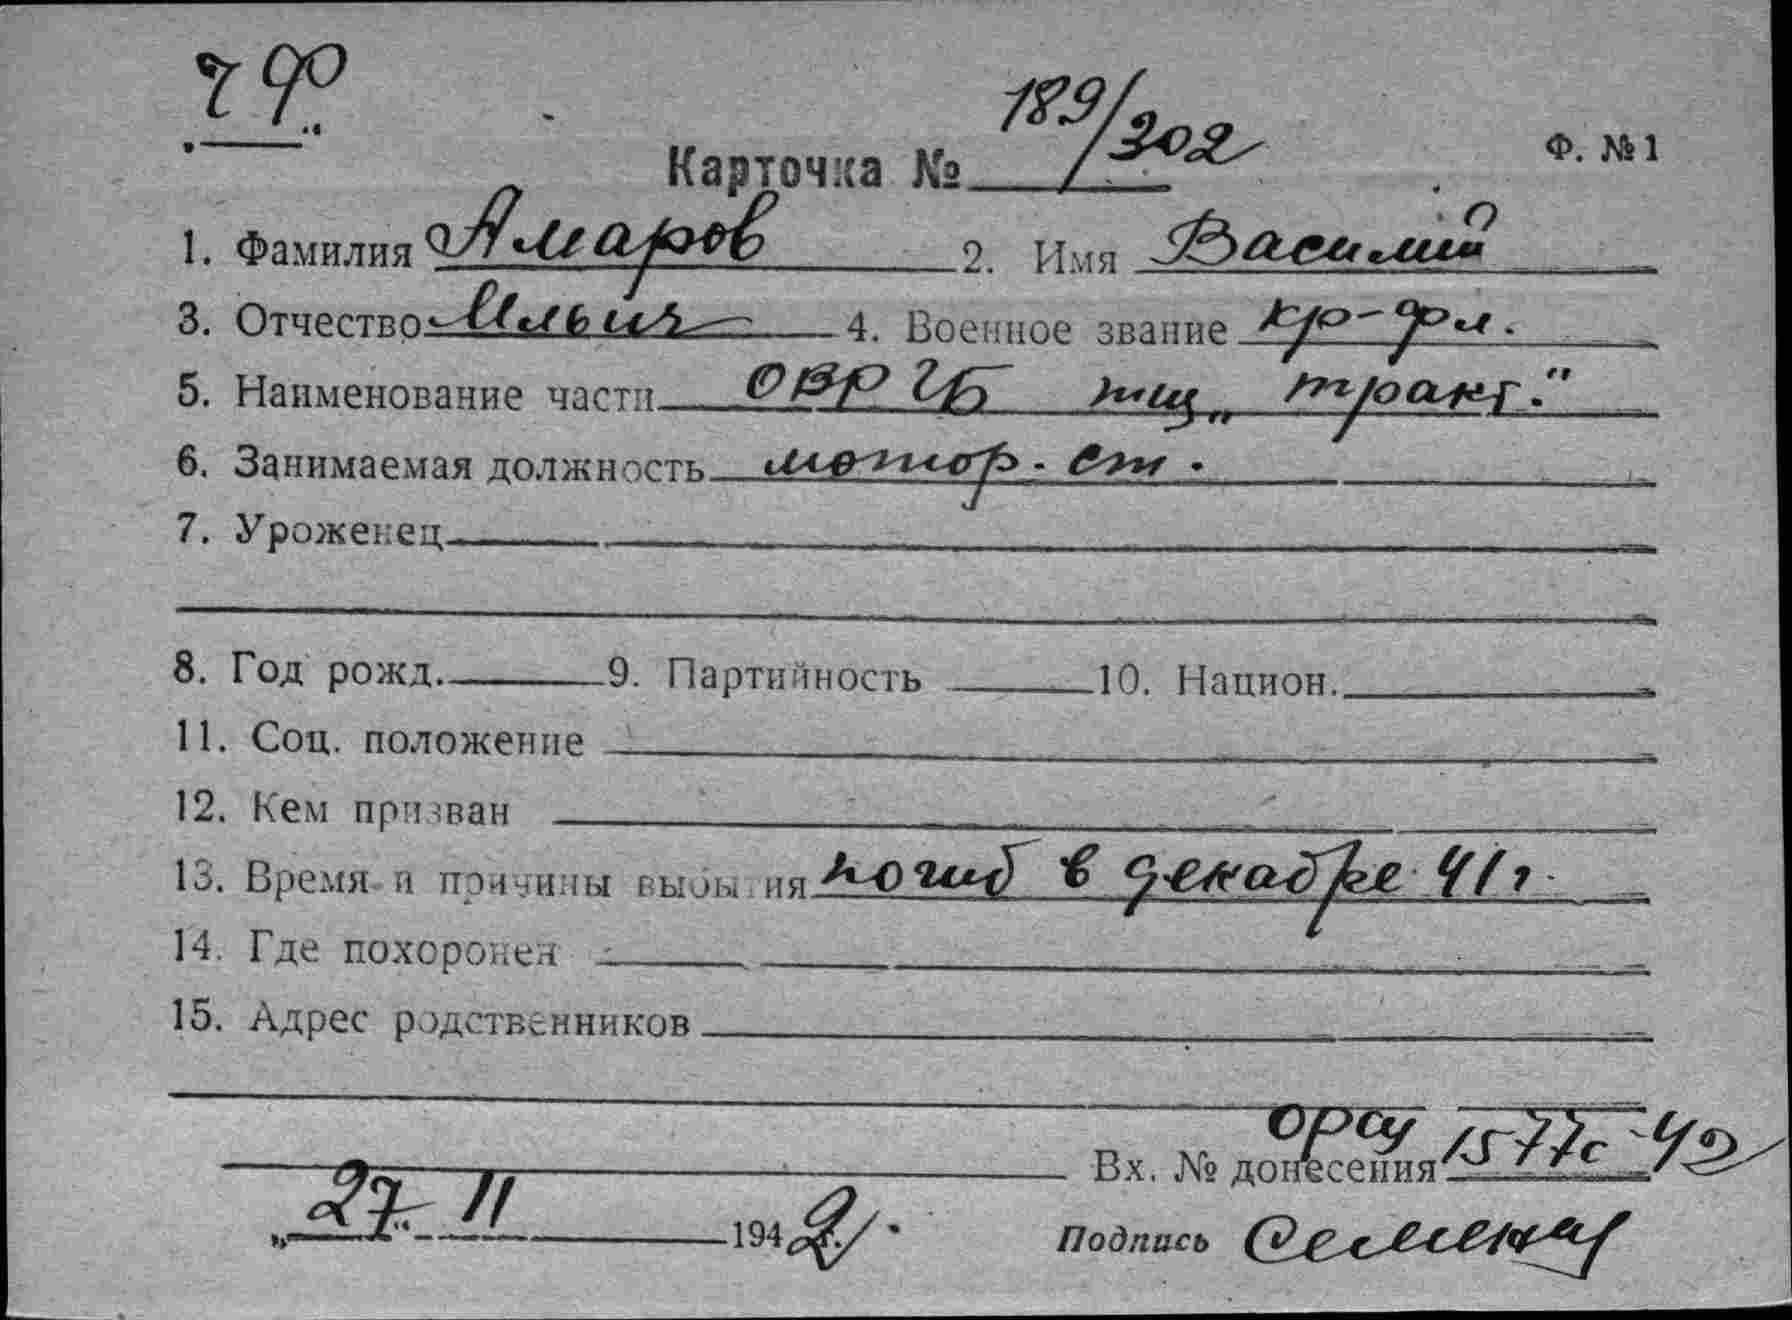 ЧФ
189/302
Ф. №1
Карточка №
1. Фамилия Амаров 2. Имя Василий
3. Отчество Ильич 4. Военное звание кр-фл.
5. Наименование части ОВР ГБ тщ „
6. Занимаемая должность мотор. ст.
7. Уроженец
8. Год рожд. 9. Партийность 10. Национ.
11. Соц. положение
12. Кем призван
13. Время и причины выбытия погиб в декабре 41г.
14. Где похоронен
15. Адрес родственников
орсу
Вх. № донесения 1577с-42
„27" 11 1942г. Подпись